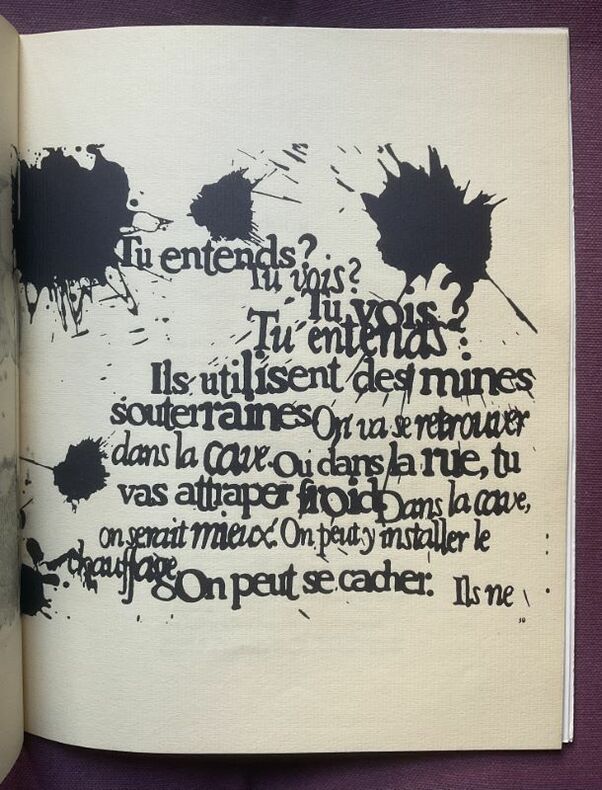 Tu entends?
Tu vois?
Tu vois?
Tu entends?
Ils utilisent des mines
souterraines On va se retrouver
dans la cave. Ou dans la rue, tu
vas attraper froid Dans la cave,
on serait mieux. On peut y installer le
chauffage On peut se cacher. Ils ne